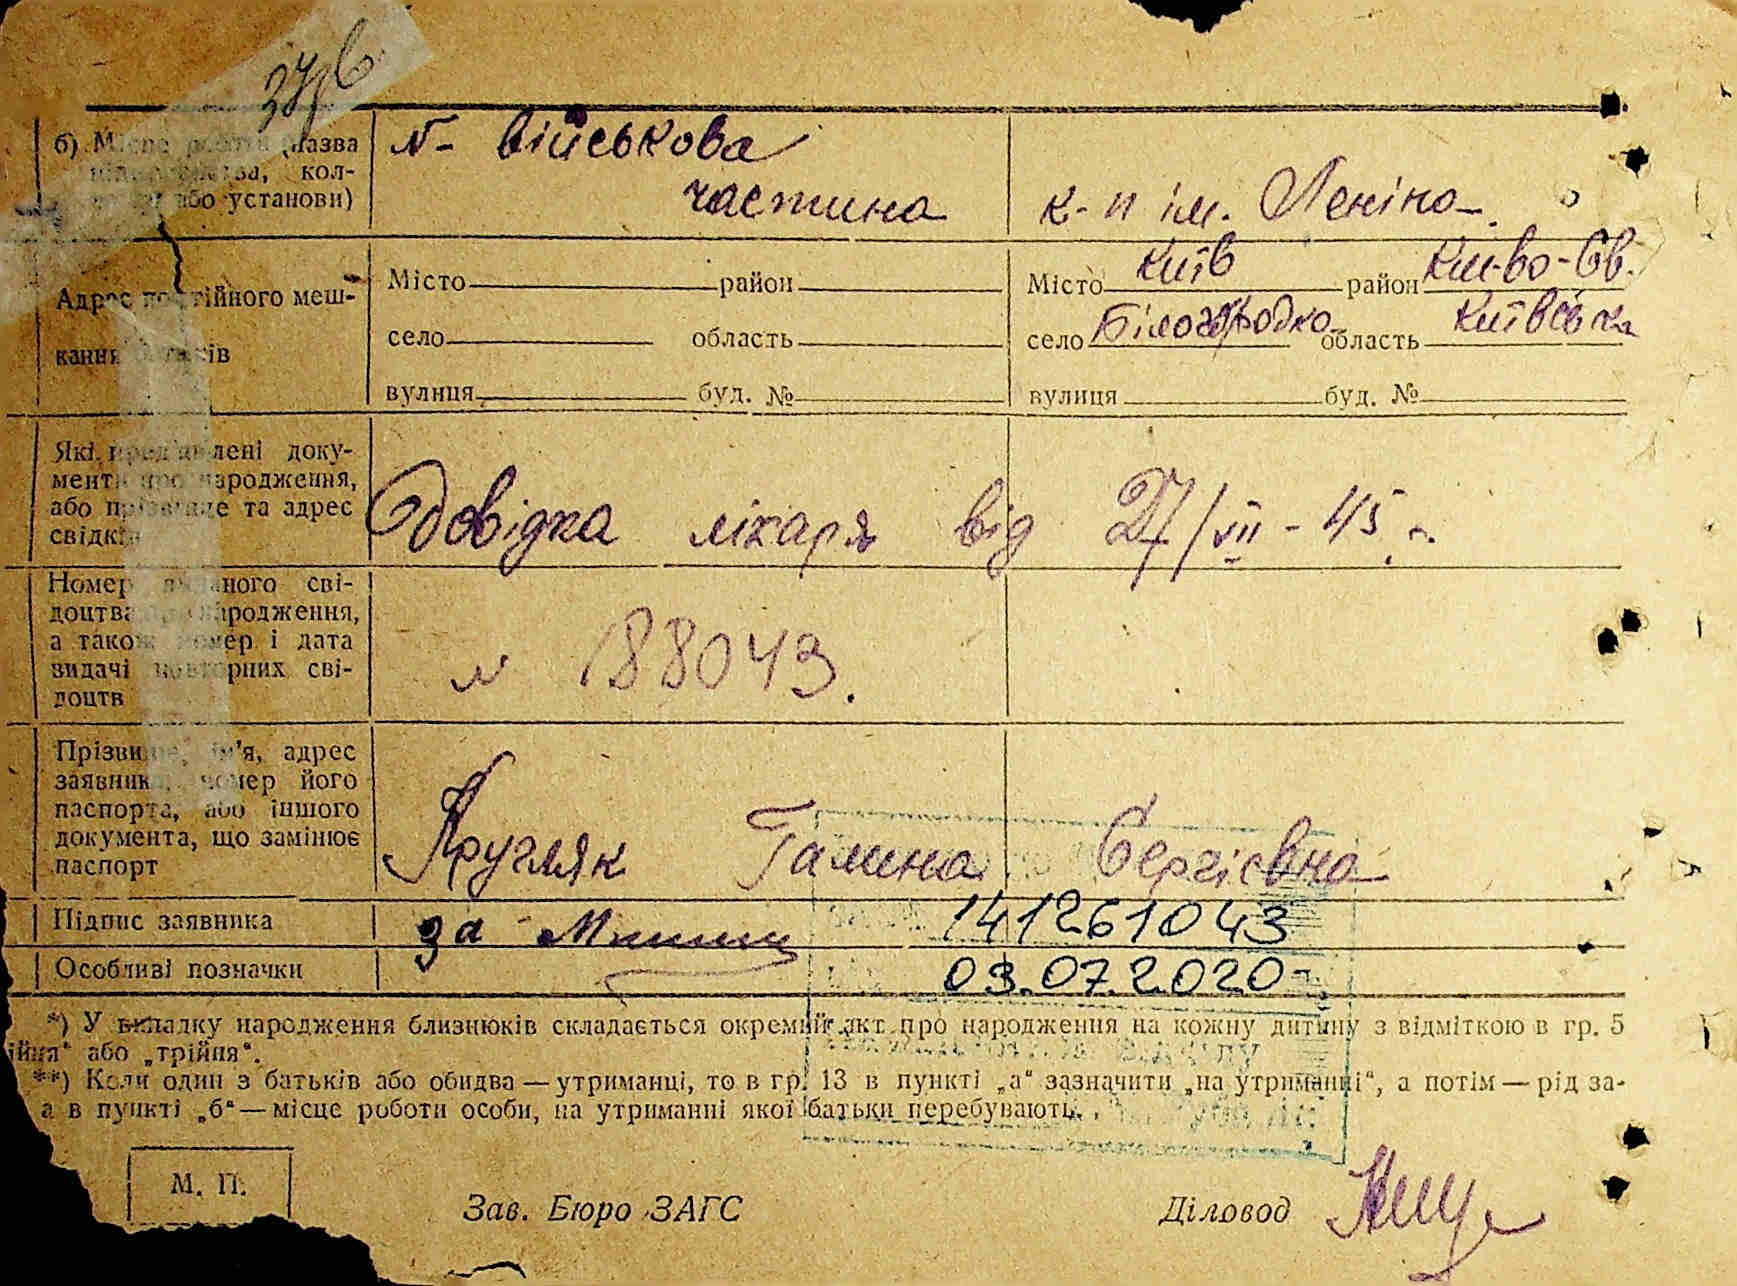 б) Місце роботи (назва підприємства, кол- або установи)
N- військова
частина
к-п ім. Леніна
Адрес постійного меш-
кання батьків
Місто район
село область
вулиця буд. №
Місто Київ район Києво-Св.
село Білогородка область Київська
вулиця буд. №
Які пред'явлені доку-
менти про народження,
або прізвище та адрес
свідків
Довідка лікаря від 27/VII-45 р.
Номер виданого сві-
доцтва про народження,
а також номер і дата
видачі повторних сві-
доцтв
N 188043.
Прізвище, ім'я, адрес
заявника, номер його
паспорта, або іншого
документа, що замінює
паспорт
Кругляк Галина Сергієвна
Підпис заявника
за
141261043
Особливі позначки
03.07.2020
*) У випадку народження близнюків складається окремий акт про народження на кожну дитину з відміткою в гр. 5
ійня" або „трійня".
**) Коли один з батьків або обидва — утриманці, то в гр. 13 в пункті „а" зазначити „на утриманні", а потім — рід за-
а в пункті „б" — місце роботи особи, на утриманні якої батьки перебувають.
М. П.
Зав. Бюро ЗАГС
Діловод